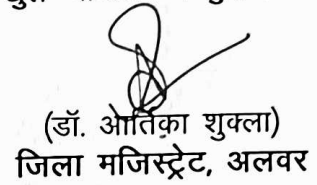 (डॉ. ओर्तिका शुक्ला)
जिला मजिस्ट्रेट, अलवर